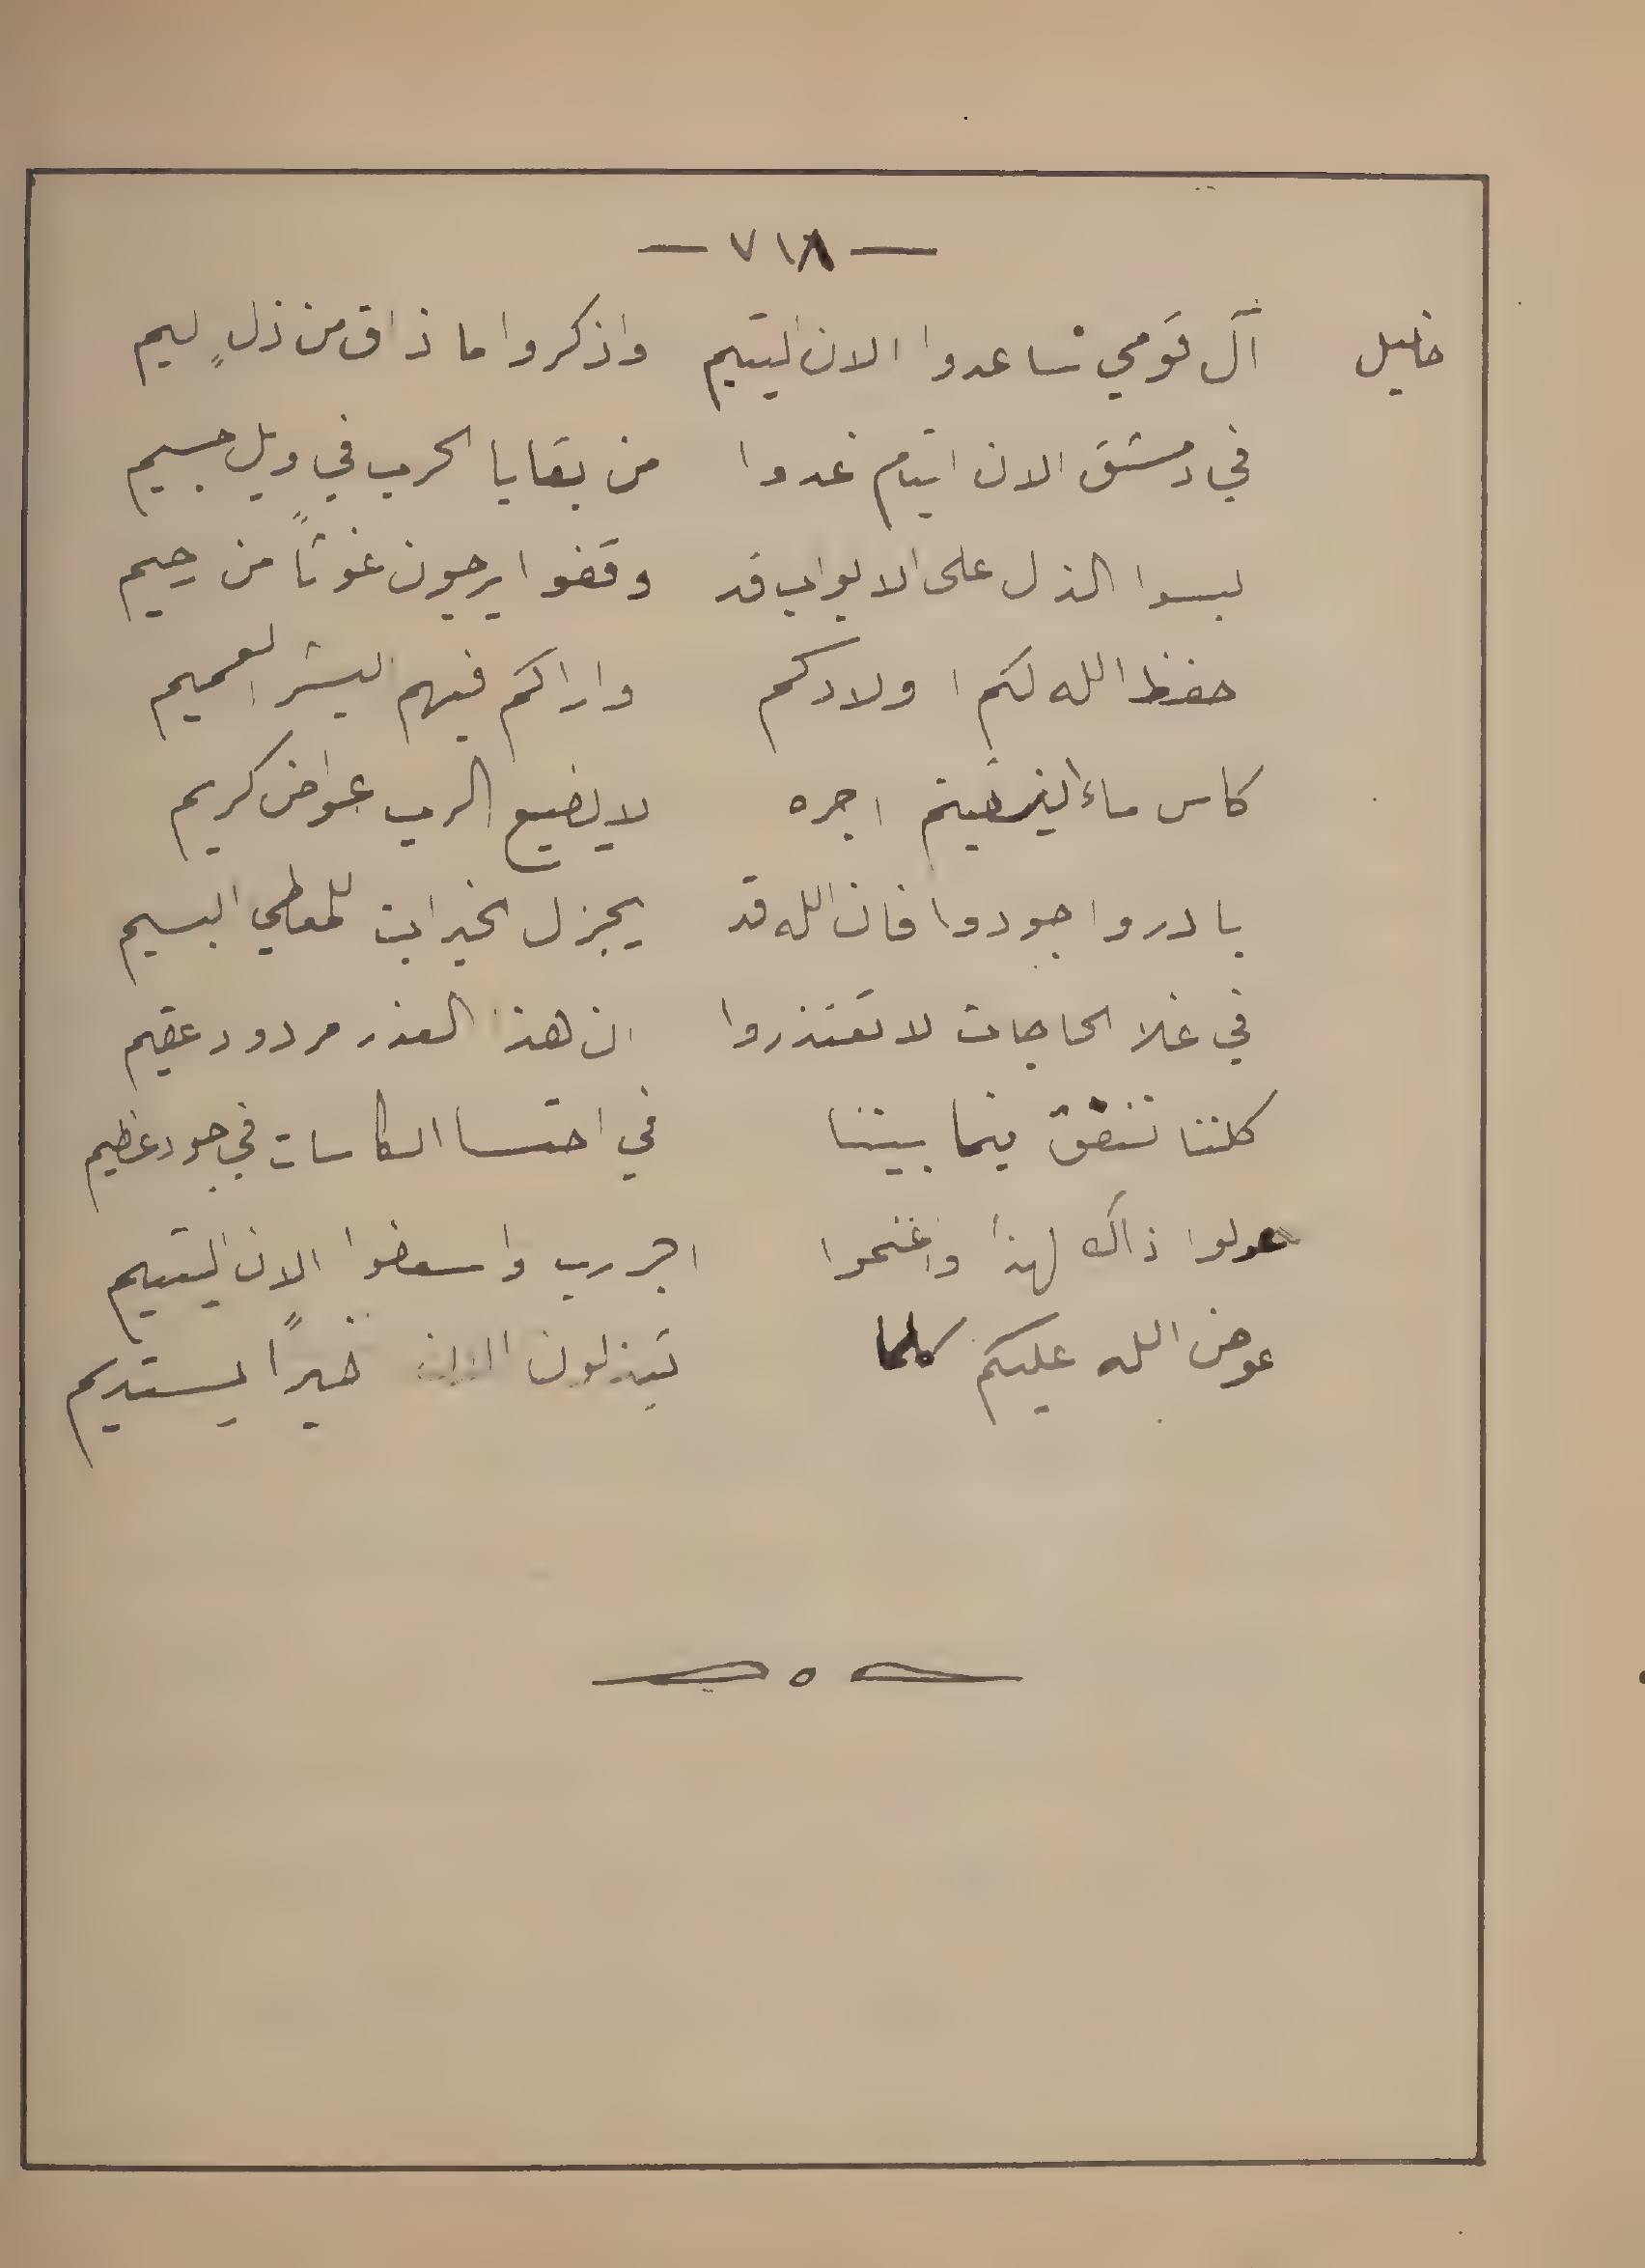 — ٧١٨ —
خليل آل قومي ساعدوا الان اليتيم واذكروا ما ذاق من ذلٍ ليم
في دمشق الان ايتام غدوا من بقايا الحرب في ويل جسيم
لبسوا الذل على الابواب قد وقفوا يرجون غوثاً من رحيم
حفظ الله لكم اولادكم واراكم فيهم البشر العميم
كاس ماء اجره لا يضيع الرب عواض كريم
بادروا جودوا فان الله قد يجزل الخيرات للمعطي البسيم
في غلا الحاجات لا تعتذروا ان هذا العذر مردود عقيم
كلنا ننفق فيما بيننا في احتسا الكاسات في جود عظيم
حولوا ذاك لهذا واغنموا اجر رب واسعفوا الان اليتيم
عوض الله عليكم كلما تبذلون الان خيراً يستديم